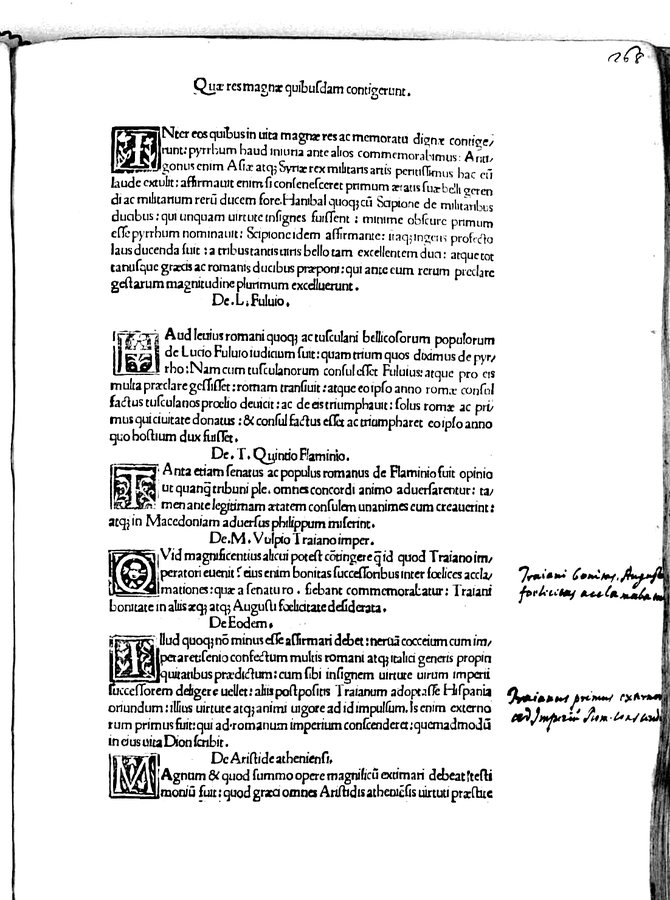 268
Quæ res magnæ quibusdam contigerunt.
INter eos quibus in uita magnæ res ac memoratu dignæ contige/
runt: pyrrhum haud iniuria ante alios commemorabimus: Anti
gonus enim Asiæ atq; Syriæ rex militaris artis peritissimus hac cū
laude extulit: affirmauit enim si consenesceret primum ætatis suæ belli geren
di ac militarium rerū ducem fore. Hanibal quoq; cū Scipione de militaribus
ducibus: qui unquam uirtute insignes fuissent: minime obscure primum
esse pyrrhum nominauit: Scipione idem affirmante: itaq; ingens profecto
laus ducenda fuit: a tribus tantis uiris bello tam excellentem duci: atque tot
tantisque græcis ac romanis ducibus præponi: qui ante eum rerum preclare
gestarum magnitudine plurimum excelluerunt.
De. L. Fuluio.
HAud leuius romani quoq; ac tusculani bellicosorum populorum
de Lucio Fuluio iudicium fuit: quam trium quos diximus de pyr/
rho: Nam cum tusculanorum consul esset Fuluius: atque pro eis
multa præclare gessisset: romam transiuit: atque eo ipso anno romæ consul
factus tusculanos prœlio deuicit: ac de eis triumphauit: solus romæ ac pri/
mus qui ciuitate donatus: & consul factus esset ac triumpharet eo ipso anno
quo hostium dux fuisset.
De. T. Quintio Flaminio.
TAnta etiam senatus ac populus romanus de Flaminio fuit opinio
ut quanq̄ tribuni ple. omnes concordi animo aduersarentur: ta/
men ante legitimam ætatem consulem unanimes eum creauerint:
atq; in Macedoniam aduersus philippum miserint.
De. M. Vulpio Traiano imper.
QVid magnificentius alicui potest cōtingere q̄ id quod Traiano im/
peratori euenit? eius enim bonitas successoribus inter fœlices accla/
mationes: quæ a senatu ro. fiebant commemorabatur: Traiani
bonitate in aliis æq; atq; Augusti fœlicitate desiderata.
De Eodem.
Illud quoq; nō minus esse affirmari debet: neruā cocceium cum im/
peraret: senio confectum multis romani atq; italici generis propin
quitatibus prædictum: cum sibi insignem uirtute uirum imperii
successorem deligere uellet: aliis postpositis Traianum adoptasse Hispania
oriundum: illius uirtute atq; animi uigore ad id impulsum. Is enim externo
rum primus fuit: qui ad romanum imperium conscenderet: quemadmodū
in eius uita Dion scribit.
De Aristide atheniensi.
MAgnum & quod summo opere magnificū existimari debeat: testi
moniū fuit: quod græci omnes Aristidis atheniēsis uirtuti præstite
Traiani bonitas. Augusti
foelicitas acclamabatur
Traianus primus
ad Imperiū